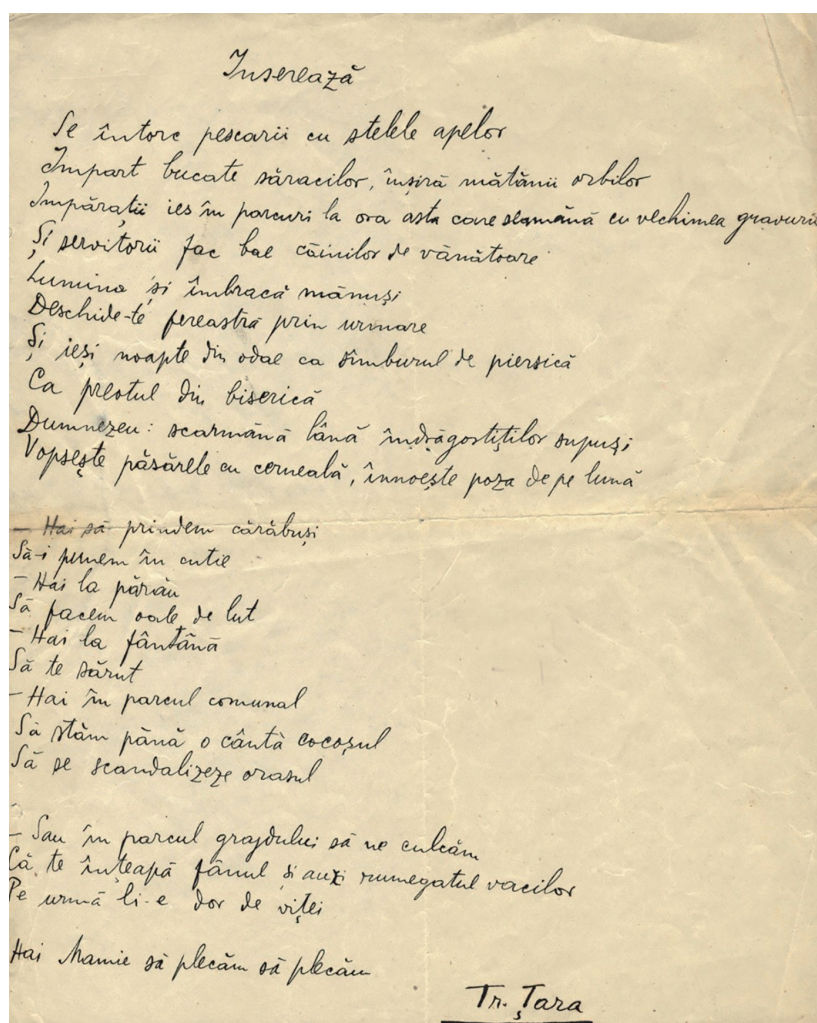 Inserează
Se întorc pescarii cu stelele apelor
Împart bucate săracilor, înșiră mătănii orbilor
Împărații ies în parcuri la ora asta care seamănă cu vechimea gravurii
Și servitorii fac bae câinilor de vânătoare
Lumina își îmbracă mănuși
Deschide-te fereastră prin urmare
Și ieși noapte din odae ca sîmburul de piersică
Ca preotul din biserică
Dumnezeu: scarmănă lână îndrăgostiților supuși
Vopsește păsările cu cerneală, înnoește poza de pe lună
– Hai să prindem cărăbuși
Să-i punem în cutie
– Hai la părău
Să facem oale de lut
– Hai la fântână
Să te sărut
– Hai în parcul comunal
Să stăm până o cânta cocoșul
Să se scandalizeze orașul
– Sau în parcul grajdului să ne culcăm
Că te înțeapă fânul și auzi rumegatul vacilor
Pe urmă li-e dor de viței
Hai Mamie să plecăm să plecăm
Tr. Țara